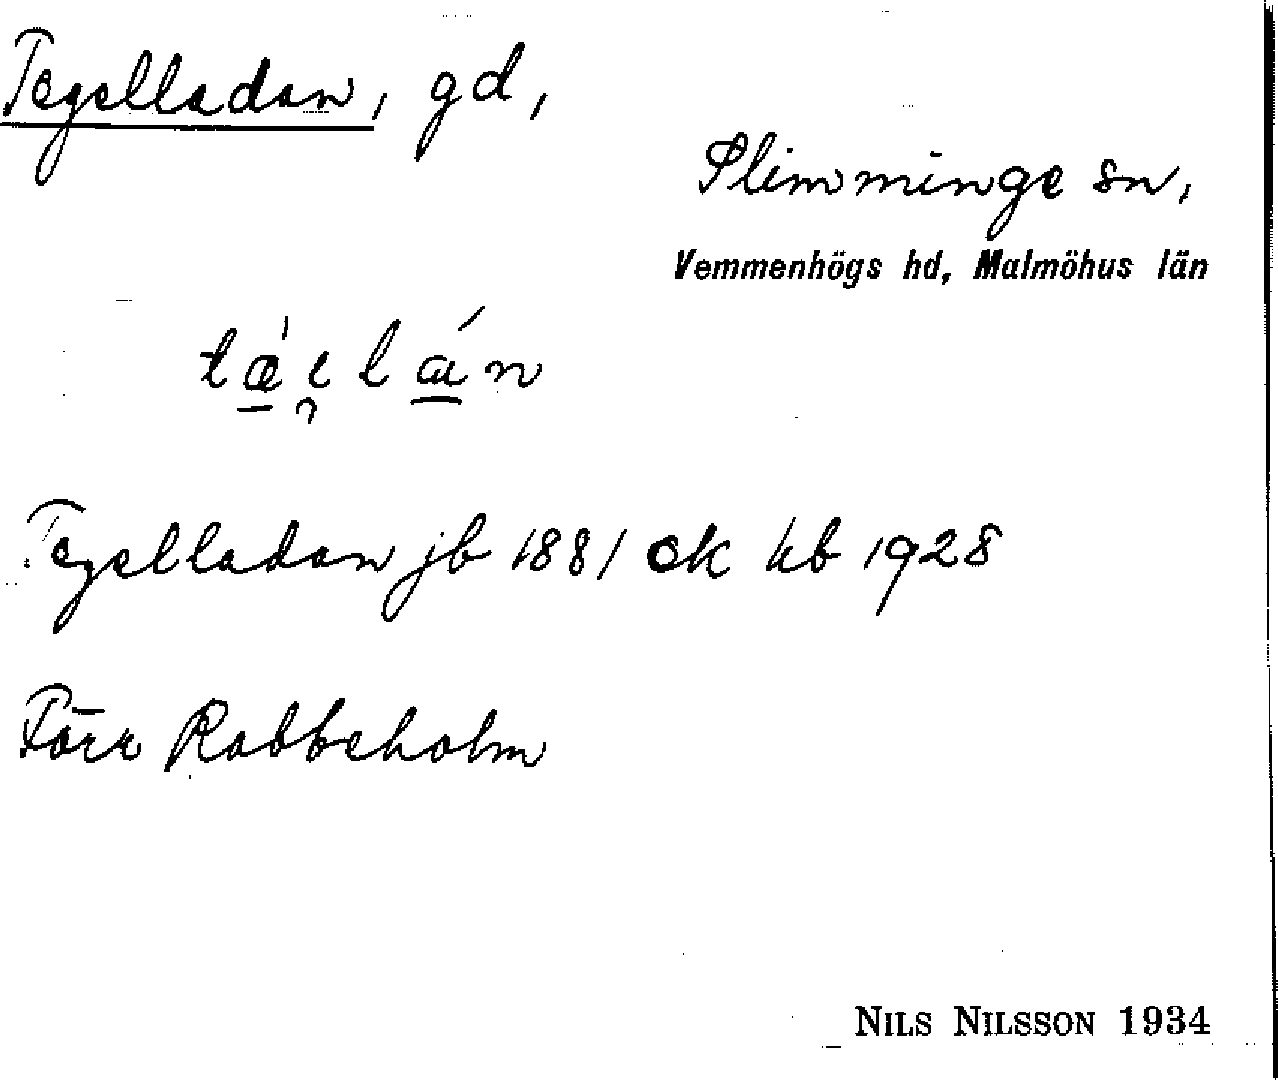 Tegelladan, gd,
Slimminge sn,
Vemmenhögs hd, Malmöhus län
Tegelladan jb 1881 ok kb 1928
Förr Rabbeholm
NILS NILSSON 1934